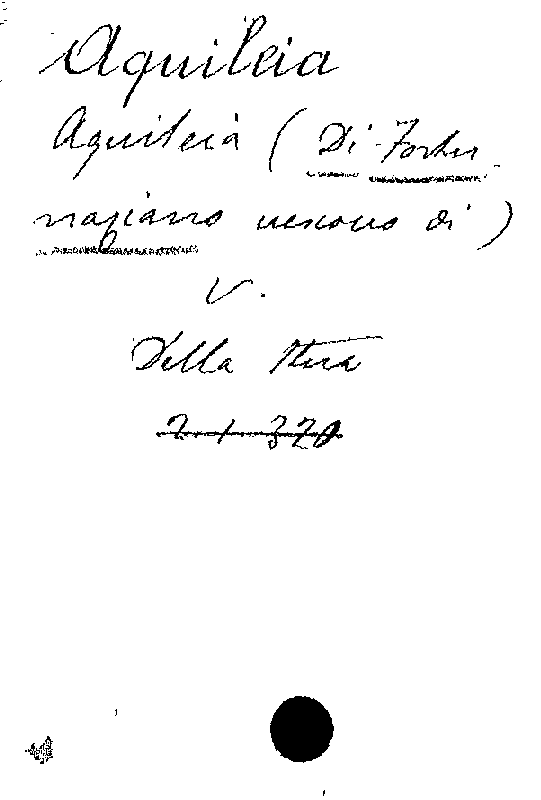 Aquileia
Aquileia ( Di Fortu-
naziano vescovo di )
V.
Della
2 1 320